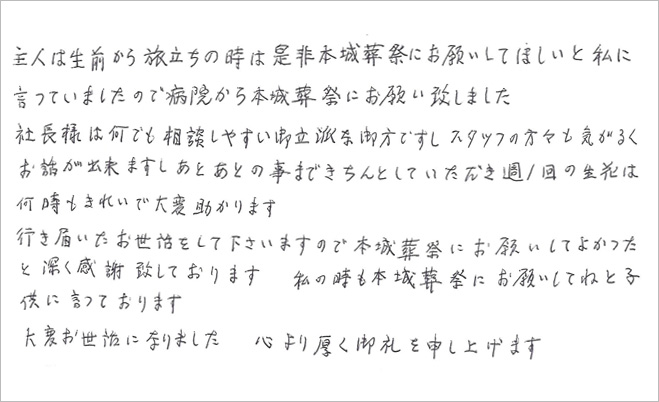 主人は生前から旅立ちの時は是非本城葬祭にお願いしてほしいと私に
言っていましたので病院から本城葬祭にお願い致しました
社長様は何でも相談しやすい御立派な御方ですしスタッフの方々も気がるく
お話が出来ますしあとあとの事まできちんとしていただき週1回の生花は
何時もきれいで大変助かります
行き届いたお世話をして下さいますので本城葬祭にお願いしてよかった
と深く感謝致しております 私の時も本城葬祭にお願いしてねと子
供に言っております
大変お世話になりました 心より厚く御礼を申し上げます